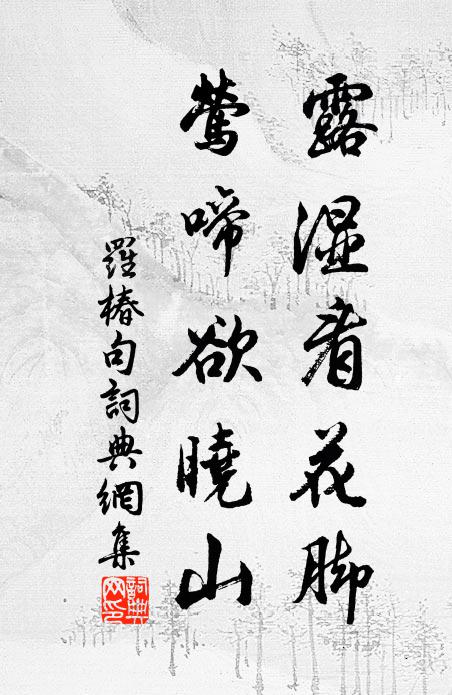 露湿看花脚
莺啼欲曉山
羅椿句詞典網集
詞典網印